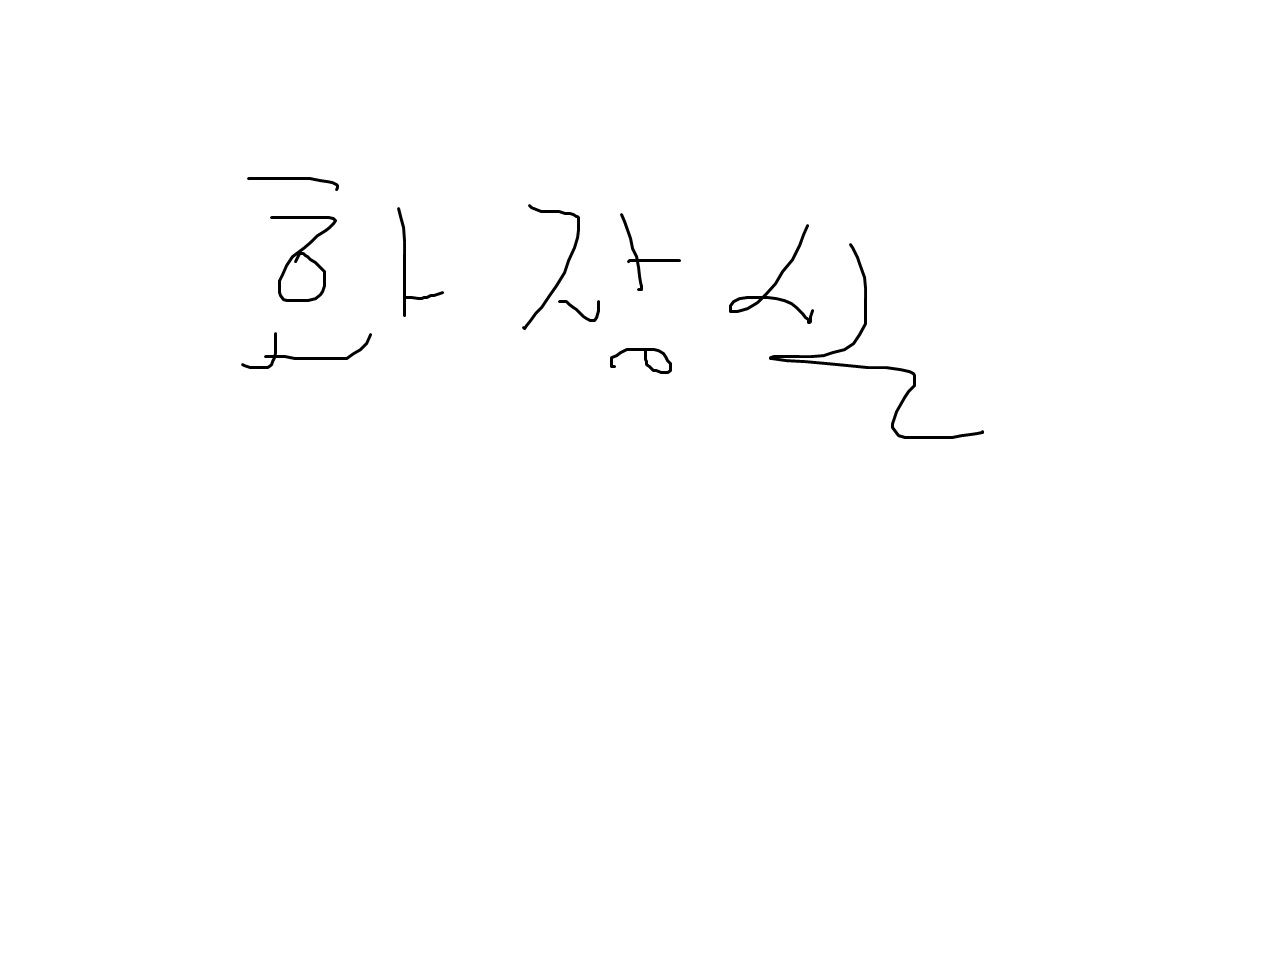 화장실